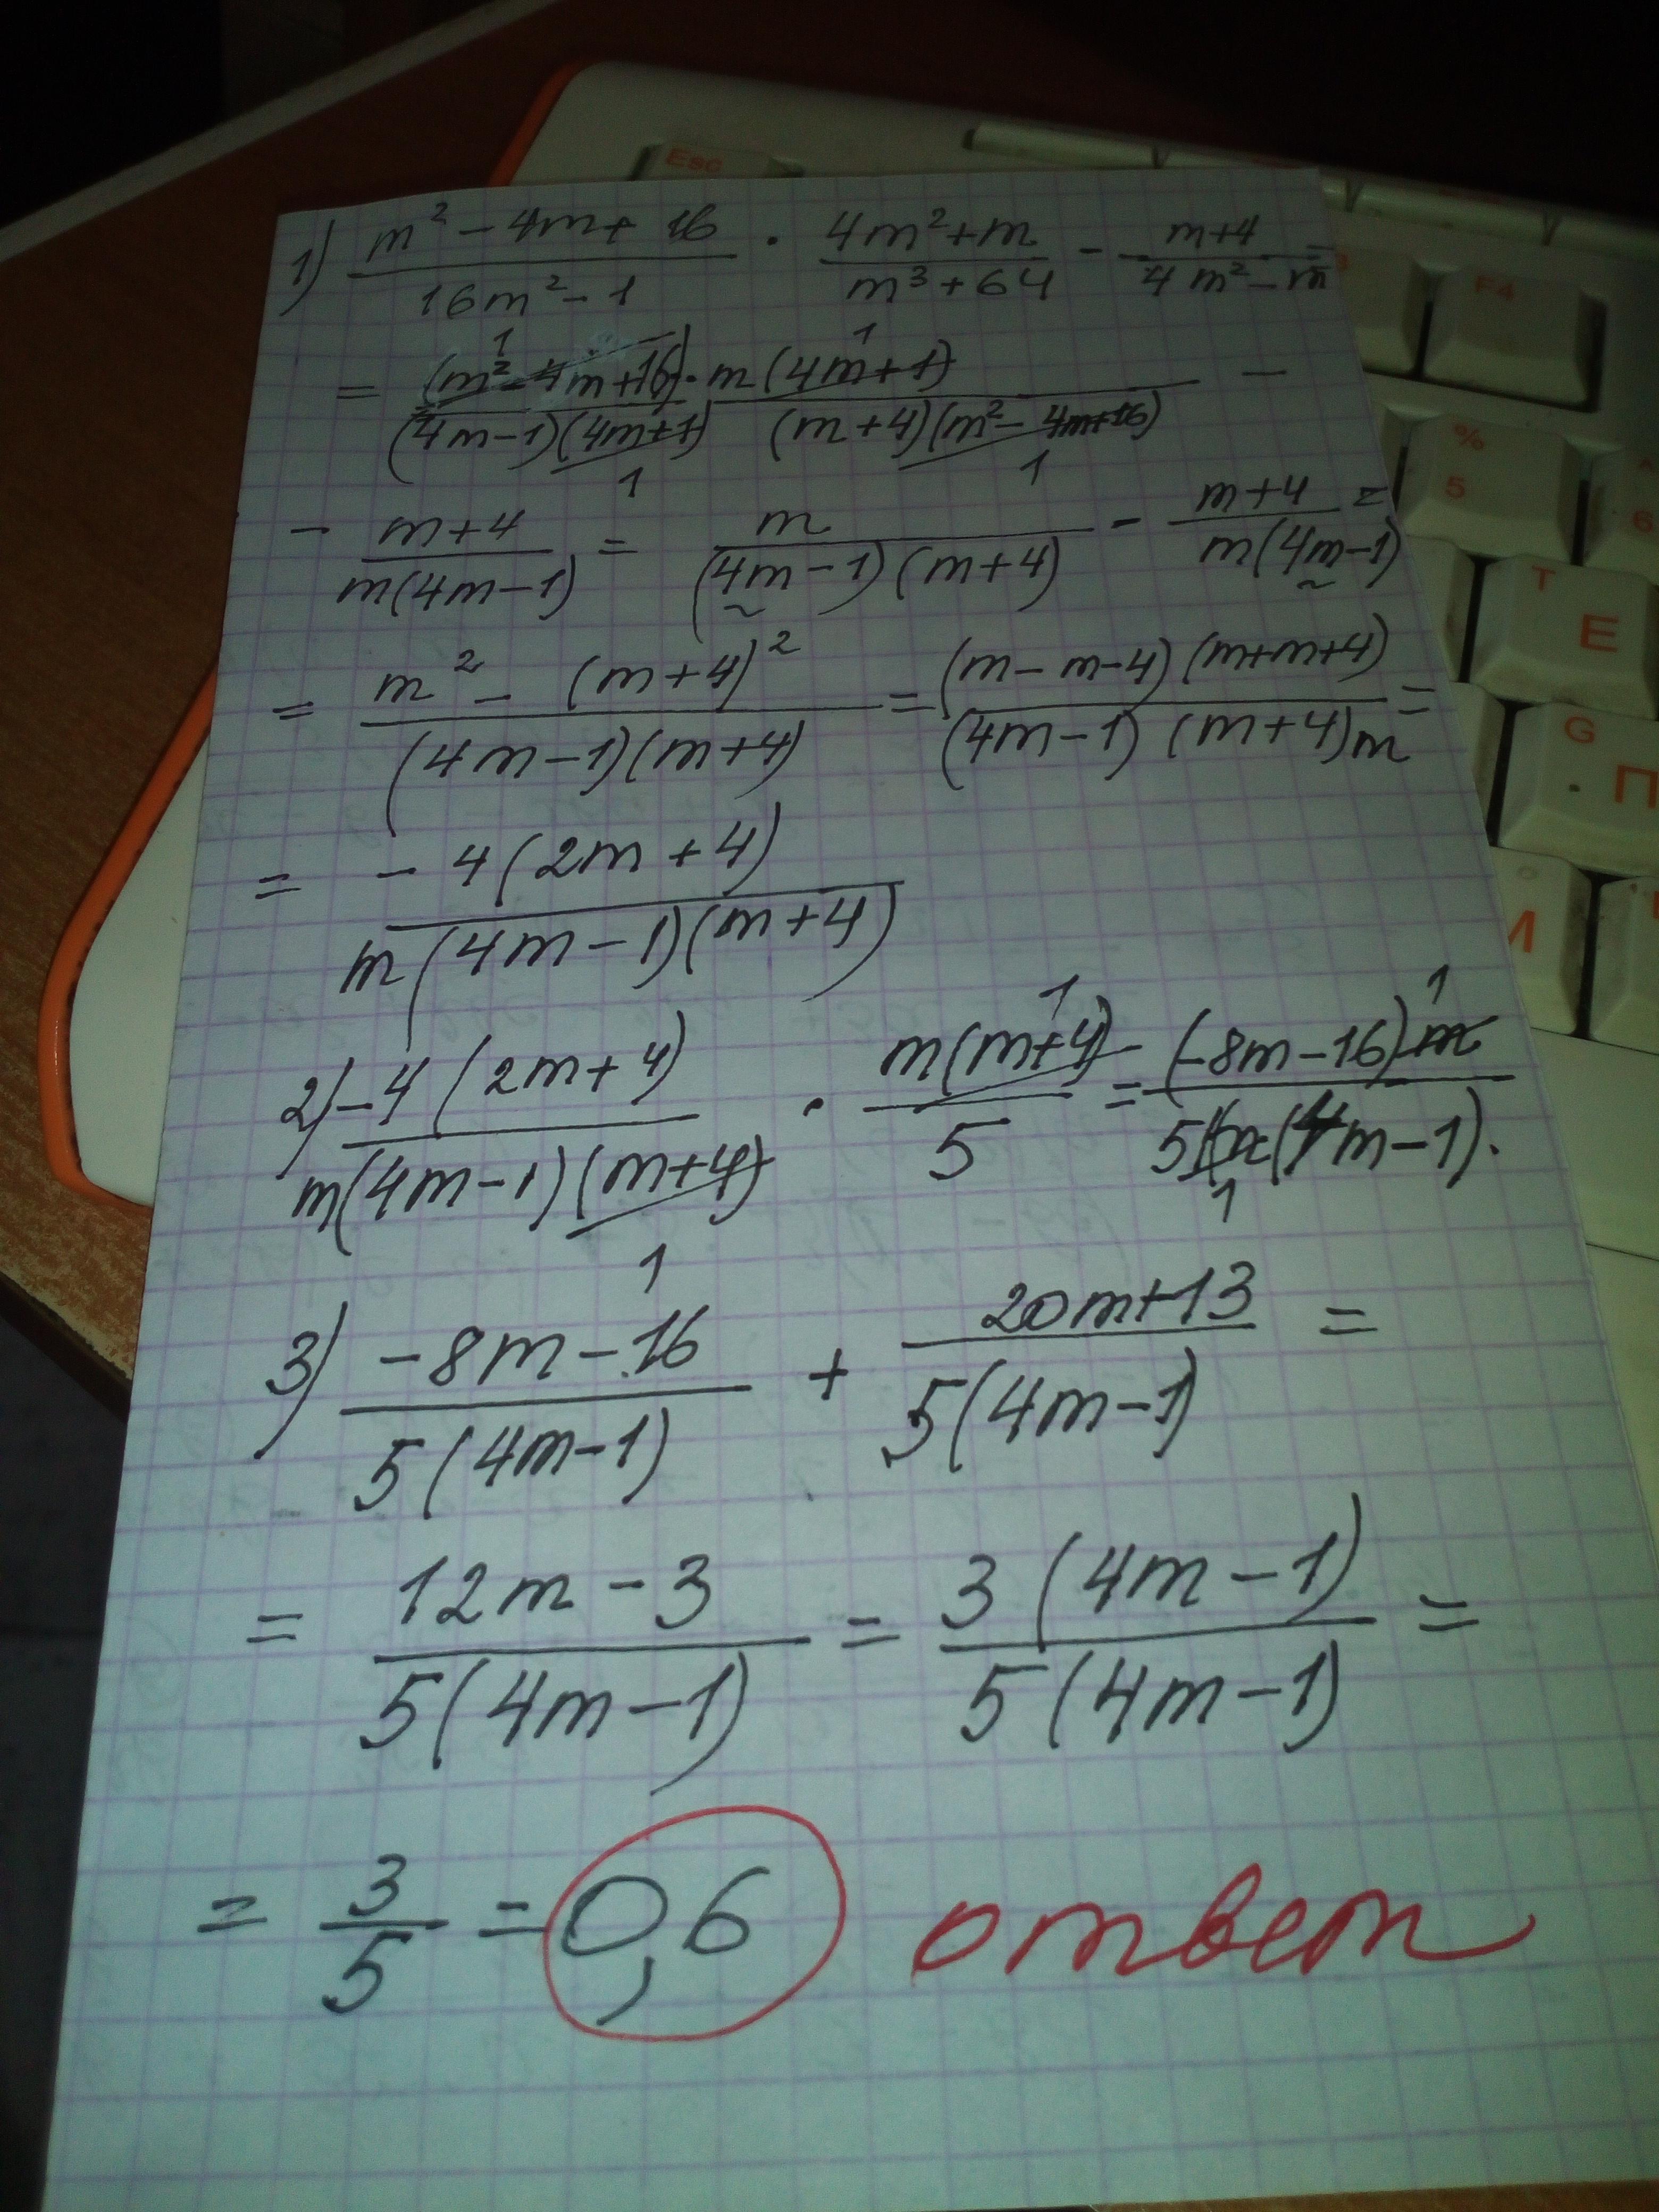 Esc
F4
1) (m² - 4m + 16)/(16m² - 1) · (4m² + m)/(m³ + 64) - (m+4)/(4m² - m) =
= (m² - 4m + 16) · m(4m+1) / (4m-1)(4m+1) (m+4)(m² - 4m+16) -
- (m+4)/(m(4m-1)) = m/((4m-1)(m+4)) - (m+4)/(m(4m-1)) =
= (m² - (m+4)²)/((4m-1)(m+4)) = (m-m-4)(m+m+4)/((4m-1)(m+4)m) =
= -4(2m+4)/(m(4m-1)(m+4))
2) -4(2m+4)/(m(4m-1)(m+4)) · m(m+4)/5 = (-8m-16)m/(5m(4m-1)).
3) (-8m-16)/(5(4m-1)) + (20m+13)/(5(4m-1)) =
= (12m-3)/(5(4m-1)) = 3(4m-1)/(5(4m-1)) =
= 3/5 = 0,6 ответ
%
5
6
T
Е
G
П